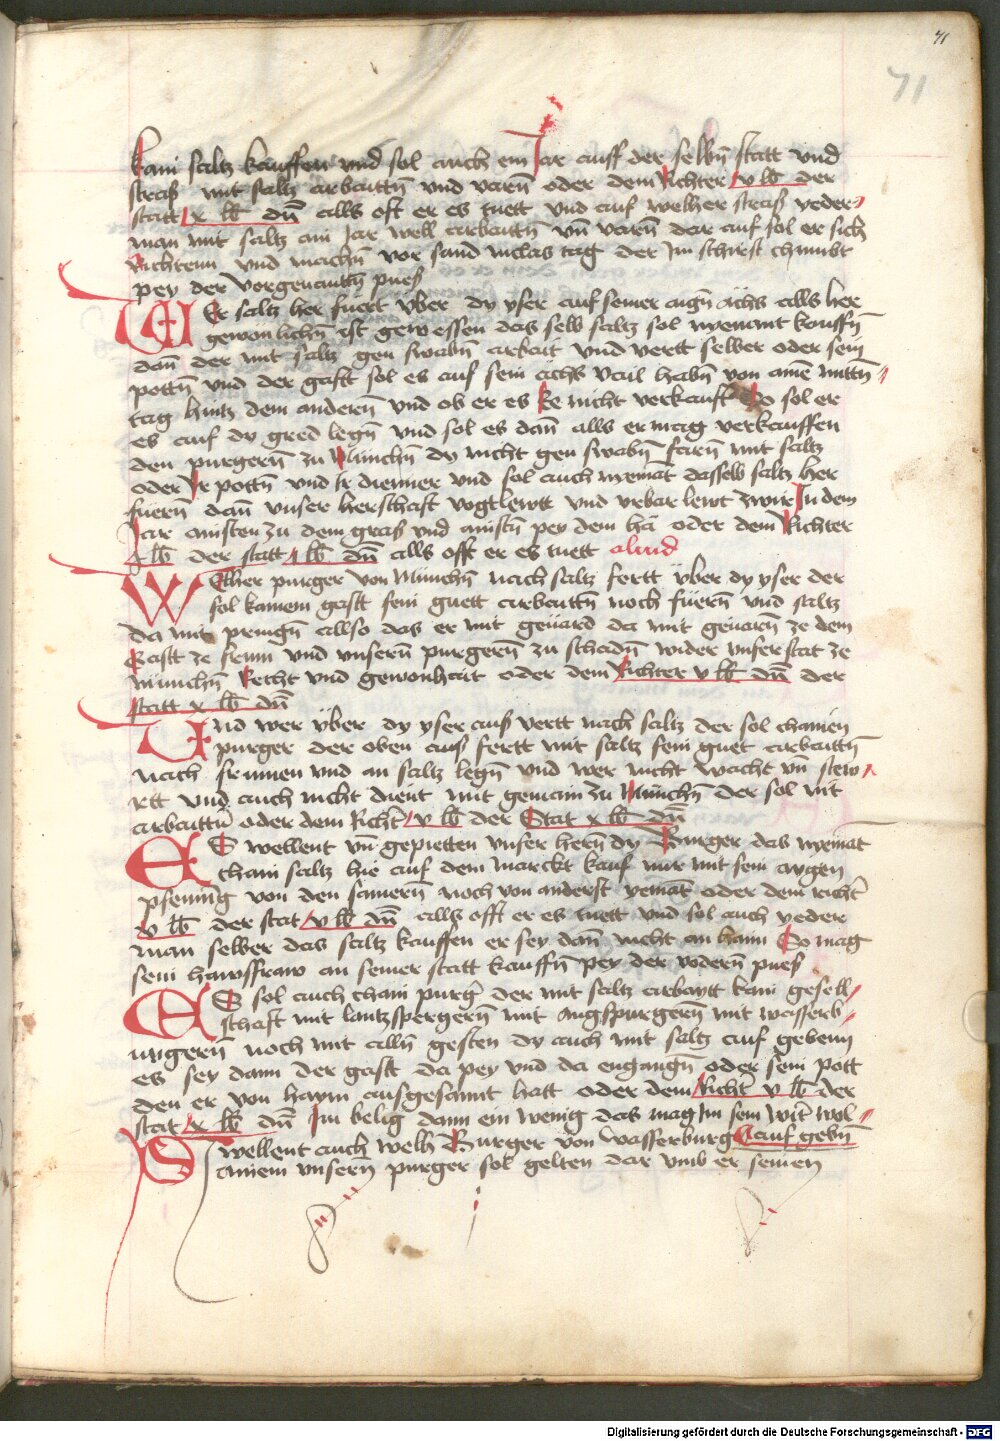 71
71
kain saltz kauffen und sol auch ein Jar auff der selbñ statt und
straß mit saltz arbaittñ und varñ oder dem Richter v lb der
statt x lb dñ alls oft er es tuett und auf welher straß yeder
man mit saltz ain Jar well arbaittñ vñ varñ dar auf sol er sich
Richtenn und machñ vor sand niclas tag der Im schirst chumbt
pey der vorgenantñ pueß
WEr saltz her füert vber dy yser auf seiner aigñ ächs alls her
gewonlichñ ist gewessen das selb saltz sol nyemant kauffñ
dañ der mit saltz gen swabñ arbait und vertt selber oder sein
pottñ und der gast sol es auf sein ächs vail habñ von ainē mittñ
tag hintz dem anderñ und ob er es Re nicht verkauft So sol er
es auf dy gred legñ und sol es dañ alls er mag verkauffen
den purgerñ zu Münchñ dy nicht gen swabñ farñ mit saltz
oder Ir pottñ und Ir dienner und sol auch nyemāt dasselb saltz her
füerñ dañ unser herschaft vogtlewtt und urbar lewt zwir In dem
Jar ainsten zu dem graß und ainstñ pey dem hä oder dem Richter
lb der statt lb dñ alls offt er es tuett aliud
WElher purger von Münchñ nach saltz fertt über dy yser der
sol kainem gastt sein guett arbaittñ noch füerñ und saltz
da mit pringñ allso das er mit geuärd da mit geuarñ ze dem
Gastt ze frum und unserñ purgerñ zu schadñ wider unser stat ze
münchñ Recht und gewonhait oder dem Richter v lb dñ der
statt x lb dñ
Und wer über dy yser auß vertt nach saltz der sol chainen
purger der oben auß fertt mit saltz sein guet arbaittñ
nach frumen und an saltz legñ und wer nicht wacht vñ stew
rtt und auch nicht dient mit gemain zu Münchñ der sol nit
arbaittñ oder dem Richt v lb der Stat x lb dñ
ES wellent vñ gepiettñ unser herñ dy Burger das nyemāt
chain saltz hie auf dem marckt kauf nur mit sein aygen
pfening von den samerñ noch von anderst yemāt oder dem richt
v lb der stat v lb dñ alls offt er es tuett und sol auch yeder
man selber das saltz kauffen er sey dañ nicht an haim So mag
sein hawsfraw an seiner statt kauffñ pey der voderñ pueß
ES sol auch chain purgr der mit saltz arbaytt kain gesell
schaft mit lantzspergerñ mit augspurgerñ mit wasserb
urgerñ noch mit allñ gesten dy auch mit saltz auf gebenn
es sey dann der gast da pey und da engangñ oder sein pott
den er von haym ausgesannt hatt oder dem Richt v lb der
stat x lb dñ Im belig dann ein wenig das mag Im sein wirt wol
auf gebñ
SI wellent auch welh Burger von wasserburg
ainem unserñ purger sol gelten dar umb er seinen
Digitalisierung gefördert durch die Deutsche Forschungsgemeinschaft - DFG